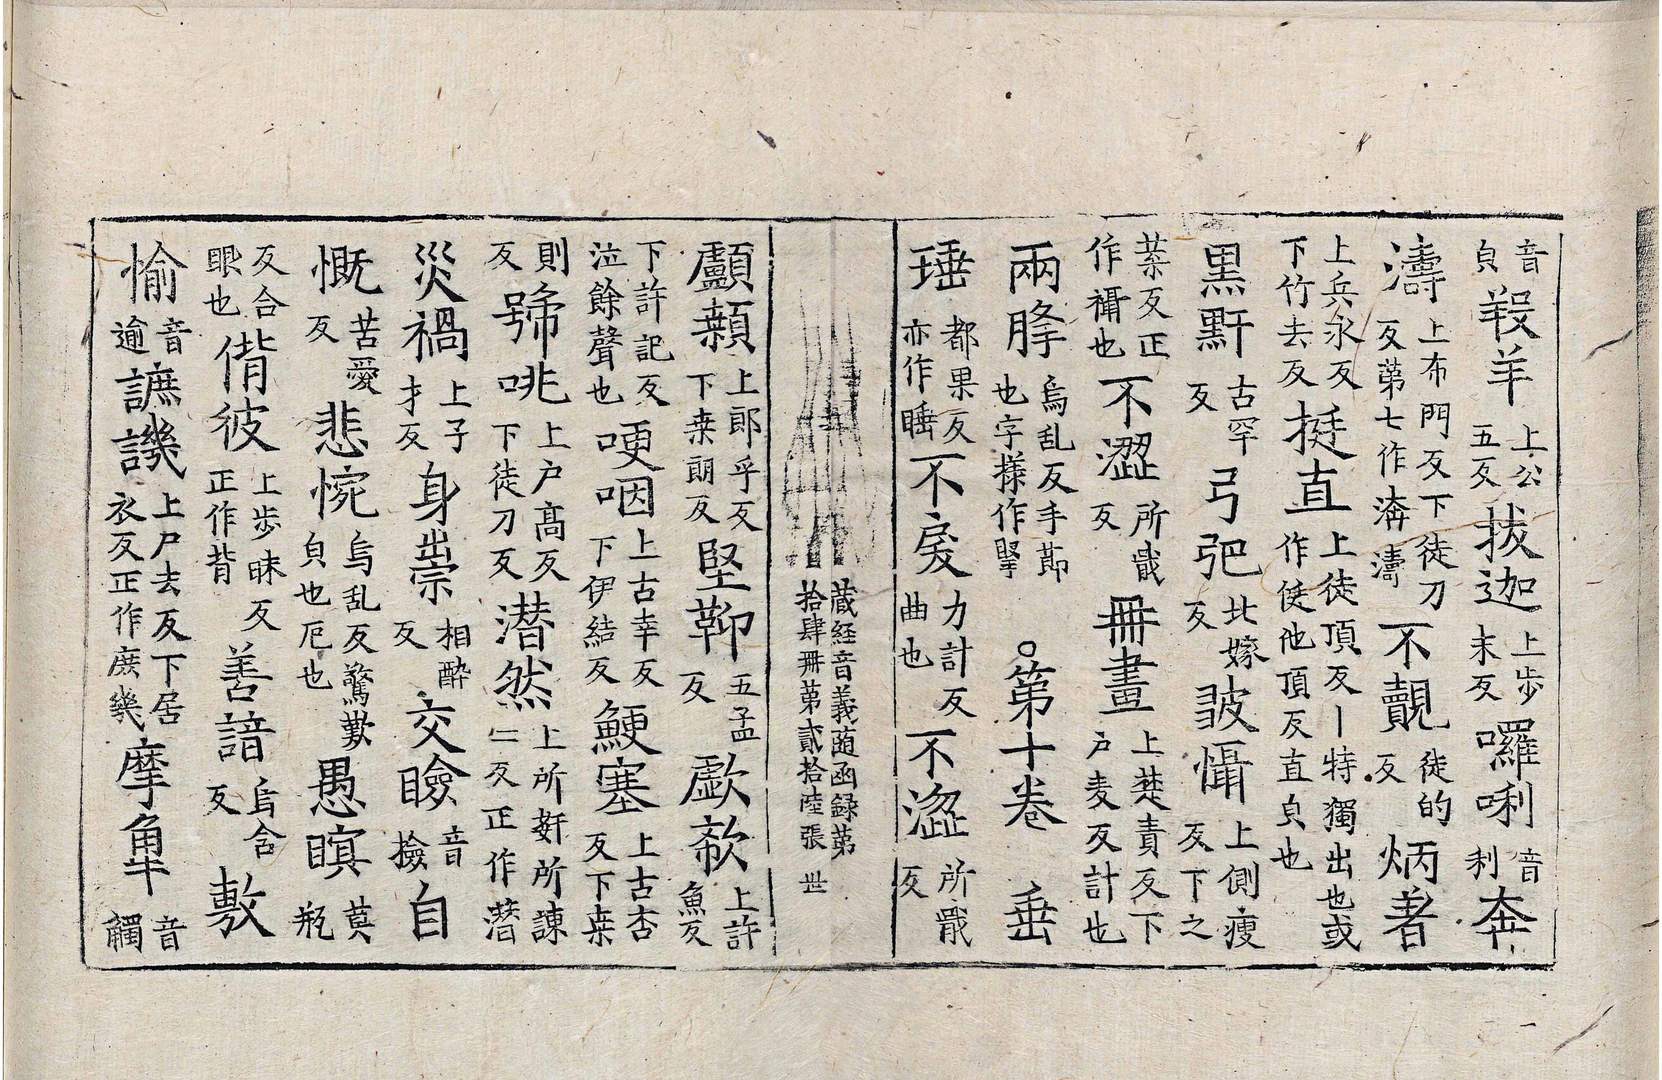 音貞羖羊上公五反拔迦上步末反囉唎音利奔
濤上布門反下徒刀反第七作渀濤不覿徒的反炳著
上兵永反下竹去反挺直上徒頂反丨特獨出也或作侹他頂反直貞也
黑䵟古罕反弓弝北嫁反皺懾上側瘦反下之
葉反正作襵也不澀所戢反冊畫上楚責反下户麦反計也
兩𦙶烏乱反手節也字㨾作掔○第十卷 垂
㻔都果反亦作睡不戾力計反曲也不澁所戢反
藏經音義随函録第拾肆冊第貳拾陸張 世
顱顙上郎乎反下桒朗反堅鞕五孟反歔欷上許魚反
下許記反泣餘聲也哽咽上古幸反下伊結反鯁塞上古杏反下桒
則反號咷上户高反下徒刀反潸然上所姧所諫二反正作潸
災禍上子才反身祟相醉反交瞼音撿自
慨苦愛反悲惋烏乱反驚歎皃也厄也愚瞑莫瓶
反合眼也偝彼上步昧反正作背善諳烏含反敷
愉音逾謶譏上尸去反下居衣反正作庻幾摩䚗音觸